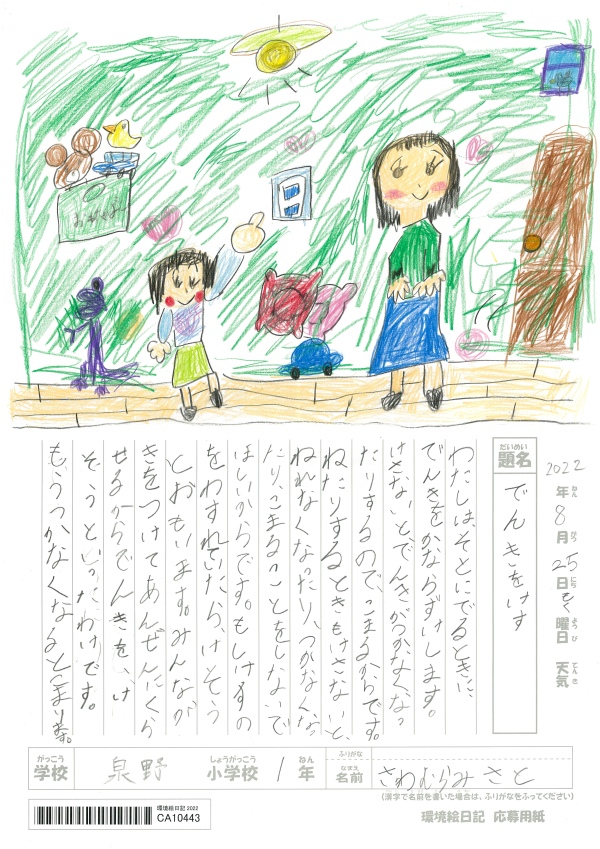 2022年8月25日もく曜日 天気
ねん
がつ
にち
ようび
てんき
だいめい
題名
でんきをけす
わたしは、そとにでるときに、
でんきをかならずけします。
けさないと、でんきがつかなくなっ
たりするので、こまるからです。
ねたりするときもけさないと、
ねれなくなったり、つかなくなっ
たり、こまることをしないで
ほしいからです。もしけすの
をわすれていたら、けそう
とおもいます。みんなが
きをつけてあんぜんにくら
せるからでんきを、け
そうといったわけです。
もうつかなくなるとこまります。
がっこう
しょうがっこう
ねん
ふりがな
なまえ
学校 泉野 小学校 1年 名前 さわむらみさと
(漢字で名前を書いた場合は、ふりがなをふってください)
環境絵日記 2022
CA10443
環境絵日記 応募用紙